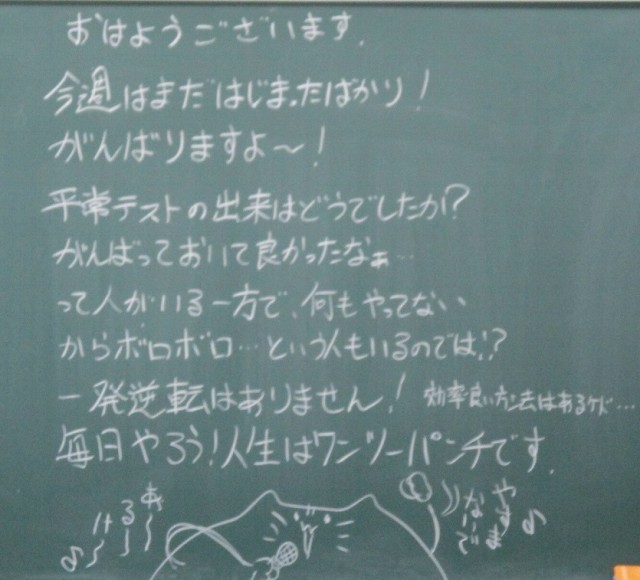 おはようございます.
今週はまだはじまったばかり!
がんばりますよ〜!
平常テストの出来はどうでしたか?
がんばっておいて良かったなぁ…
って人がいる一方で、何もやってない
からボロボロ…という人もいるのでは!?
一発逆転はありません! 効率良い方法はあるケド…
毎日やろう!人生はワンツーパンチです.
♪あ〜る〜け〜
や〜すま〜な〜いで♪